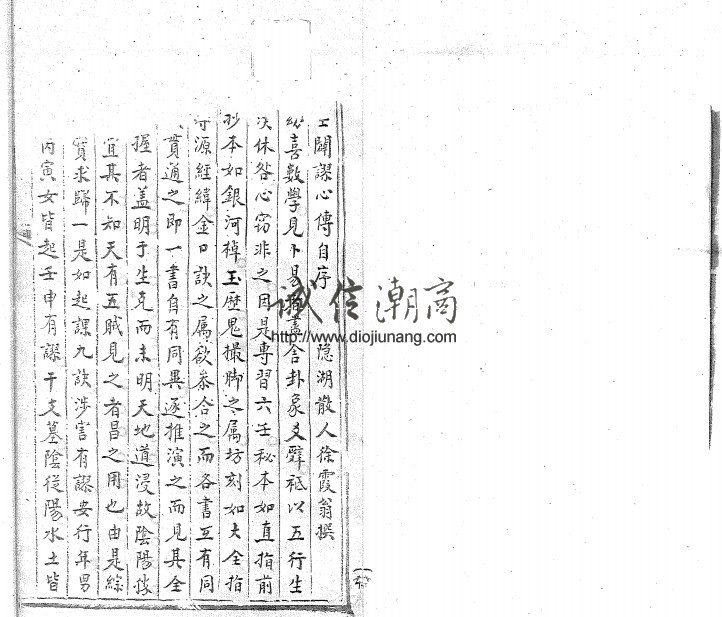 壬闈謬心傳自序 隐湖散人徐霞翁撰
喜數學見卜易者盡舍卦象爻辭祗以五行生
决休咎心窃非之因是專習六壬秘本如直指前
抄本如銀河棹玉歷鬼撮脚之属坊刻如大全指
源經緯金口訣之属欲叅合之而各書互有同
貫通之即一書自有同異逐推演之而見其全
握者盖明于生克而未明天地道浸故陰陽
宜其不知天有五賊見之者昌之用也由是綜
實求歸一是如起課九訣涉害有謬安行年男
丙寅女皆起壬申有謬干支墓陰從陽水土皆
诚信潮商
http://www.diojiunang.com